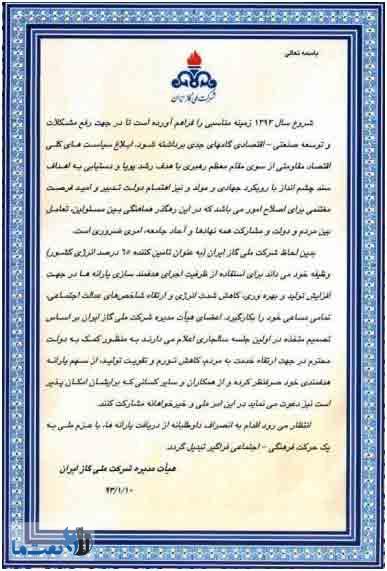 باسمه تعالی
شرکت ملی گاز ایران
شروع سال ۱۳۹۳ زمینه مناسبی را فراهم آورده است تا در جهت رفع مشکلات
و توسعه صنعتی - اقتصادی گامهای جدی برداشته شود. ابلاغ سیاست های کلی
اقتصاد مقاومتی از سوی مقام معظم رهبری با هدف رشد پویا و دستیابی به اهداف
سند چشم انداز با رویکرد جهادی و مولد و نیز اهتمام دولت تدبیر و امید فرصت
مغتنمی برای اصلاح امور می باشد که در این رهگذر هماهنگی بین مسئولین، تعامل
بین مردم و دولت و مشارکت همه نهادها و آحاد جامعه، امری ضروری است.
بدین لحاظ شرکت ملی گاز ایران (به عنوان تامین کننده ۶۵ درصد انرژی کشور)
وظیفه خود می داند برای استفاده از ظرفیت اجرای هدفمند سازی یارانه ها در جهت
افزایش تولید و بهره وری، کاهش شدت انرژی و ارتقاء شاخص‌های عدالت اجتماعی،
تمامی مساعی خود را بکارگیرد. اعضای هیأت مدیره شرکت ملی گاز ایران بر اساس
تصمیم متخذه در اولین جلسه سالجاری اعلام می دارند به منظور کمک به دولت
محترم در جهت ارتقاء خدمت به مردم، کاهش تورم و تقویت تولید، از سهم یارانه
هدفمندی خود صرفنظر کرده و از همکاران و سایر کسانی که برایشان امکان پذیر
است نیز دعوت می نماید در این امر ملی و خیرخواهانه مشارکت کنند.
انتظار می رود اقدام به انصراف داوطلبانه از دریافت یارانه ها، با عزم ملی به
یک حرکت فرهنگی - اجتماعی فراگیر تبدیل گردد.
هیأت مدیره شرکت ملی گاز ایران
۹۳/۱/۱۰
نفت ما